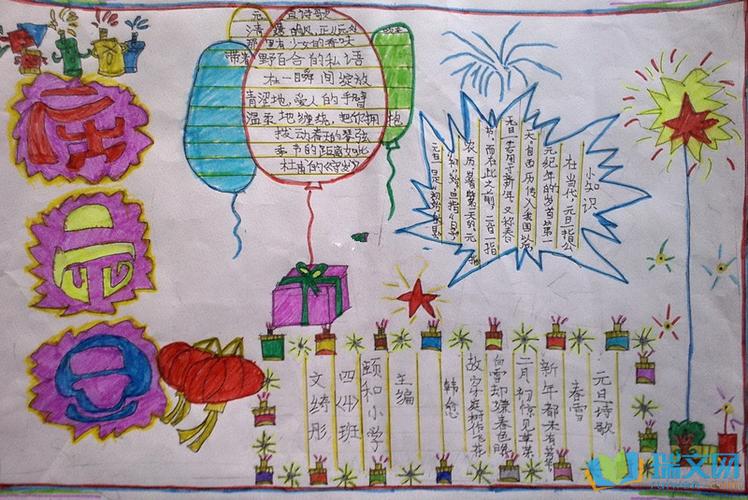 诗歌
那里有少女的香味
带着野百合的私语
在一瞬间绽放
青涩地,爱人的手臂
温柔地缠绕,把你拥抱
拨动着 琴弦
季节的距离如此
杜甫的《守岁》
小知识
在当代,元旦指公
元纪年的岁首第一
天自西历传入我国以后
元旦 专用于新年,又称春
节,而在此之前,元旦一指
农历岁首第一天的元
元日诗歌
春雪
新年都未有芳华
二月初惊见草芽
白雪却嫌春色晚
故穿庭树作飞花
韩愈
主编
颐和小学
班
文绮彤
瑞文网